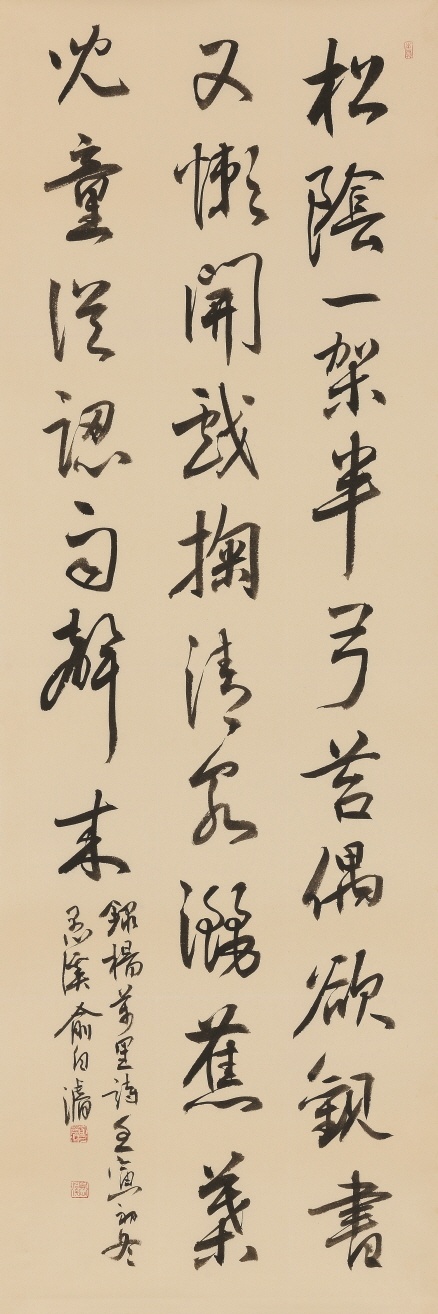 松陰一架半弓苔偶欲觀書
又懶開戲掬清泉灑蕉葉
兒童誤認雨聲來
錄楊萬里詩壬寅初冬
溪俞白